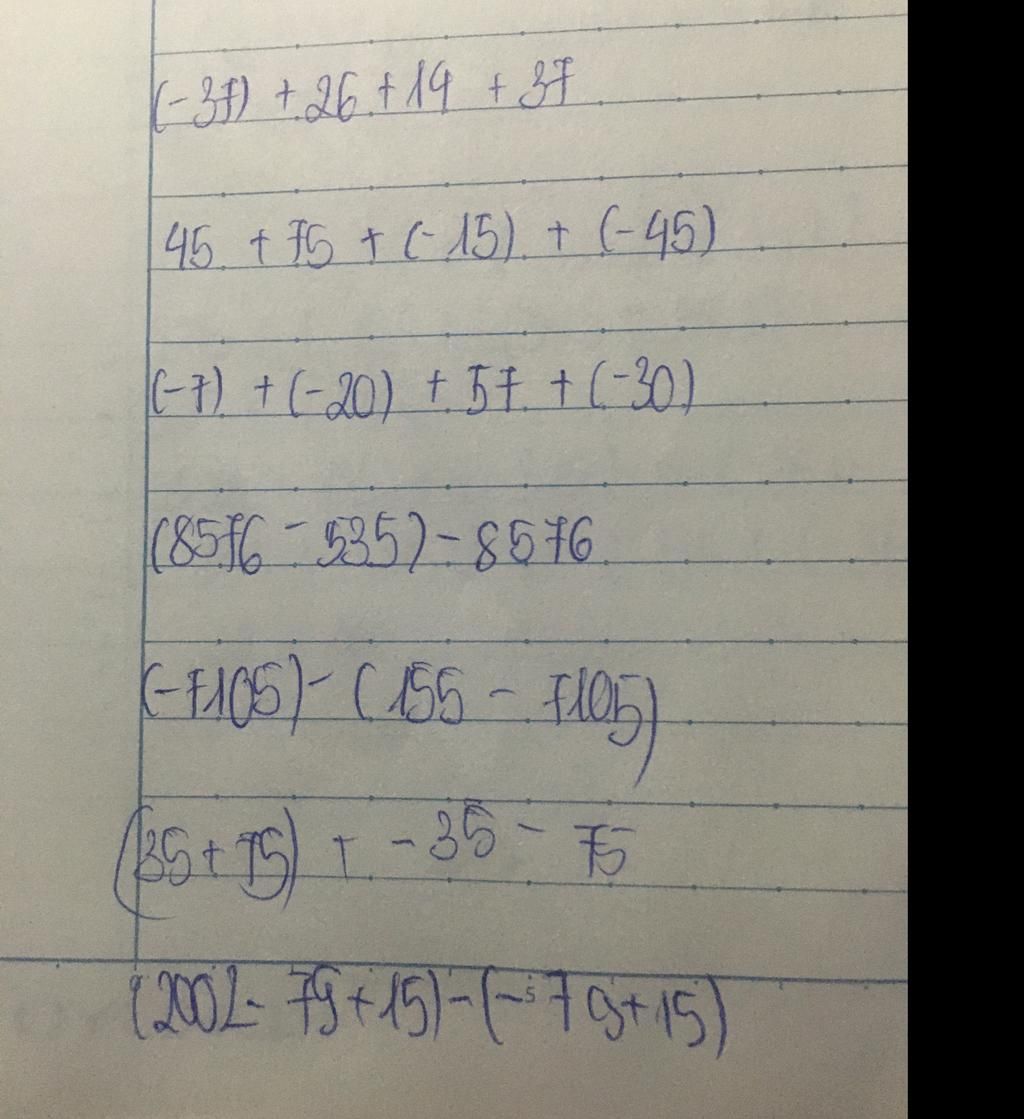 (-37) + 26 + 14 + 37
45 + 75 + (-15) + (-45)
(-7) + (-20) + 57 + (-30)
(8576 - 535) - 8576
(-7105) - (155 - 7105)
(35 + 75) + - 35 - 75
(2002 - 79 + 15) - (-79 + 15)